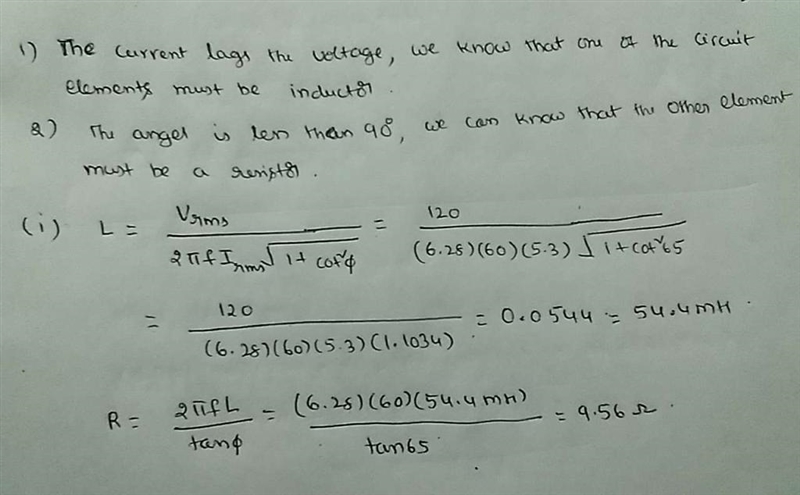 1) The current lags the voltage, we know that one of the circuit
elements must be inductor.
2) The angel is less than 90°, we can know that the other element
must be a resistor.
(i) L = Vrms / 2πf Irms √1+cot²φ = 120 / (6.28)(60)(5.3) √1+cot²65
= 120 / (6.28)(60)(5.3)(1.1034) = 0.0544 = 54.4mH.
R = 2πfL / tanφ = (6.28)(60)(54.4mH) / tan65 = 9.56 Ω.